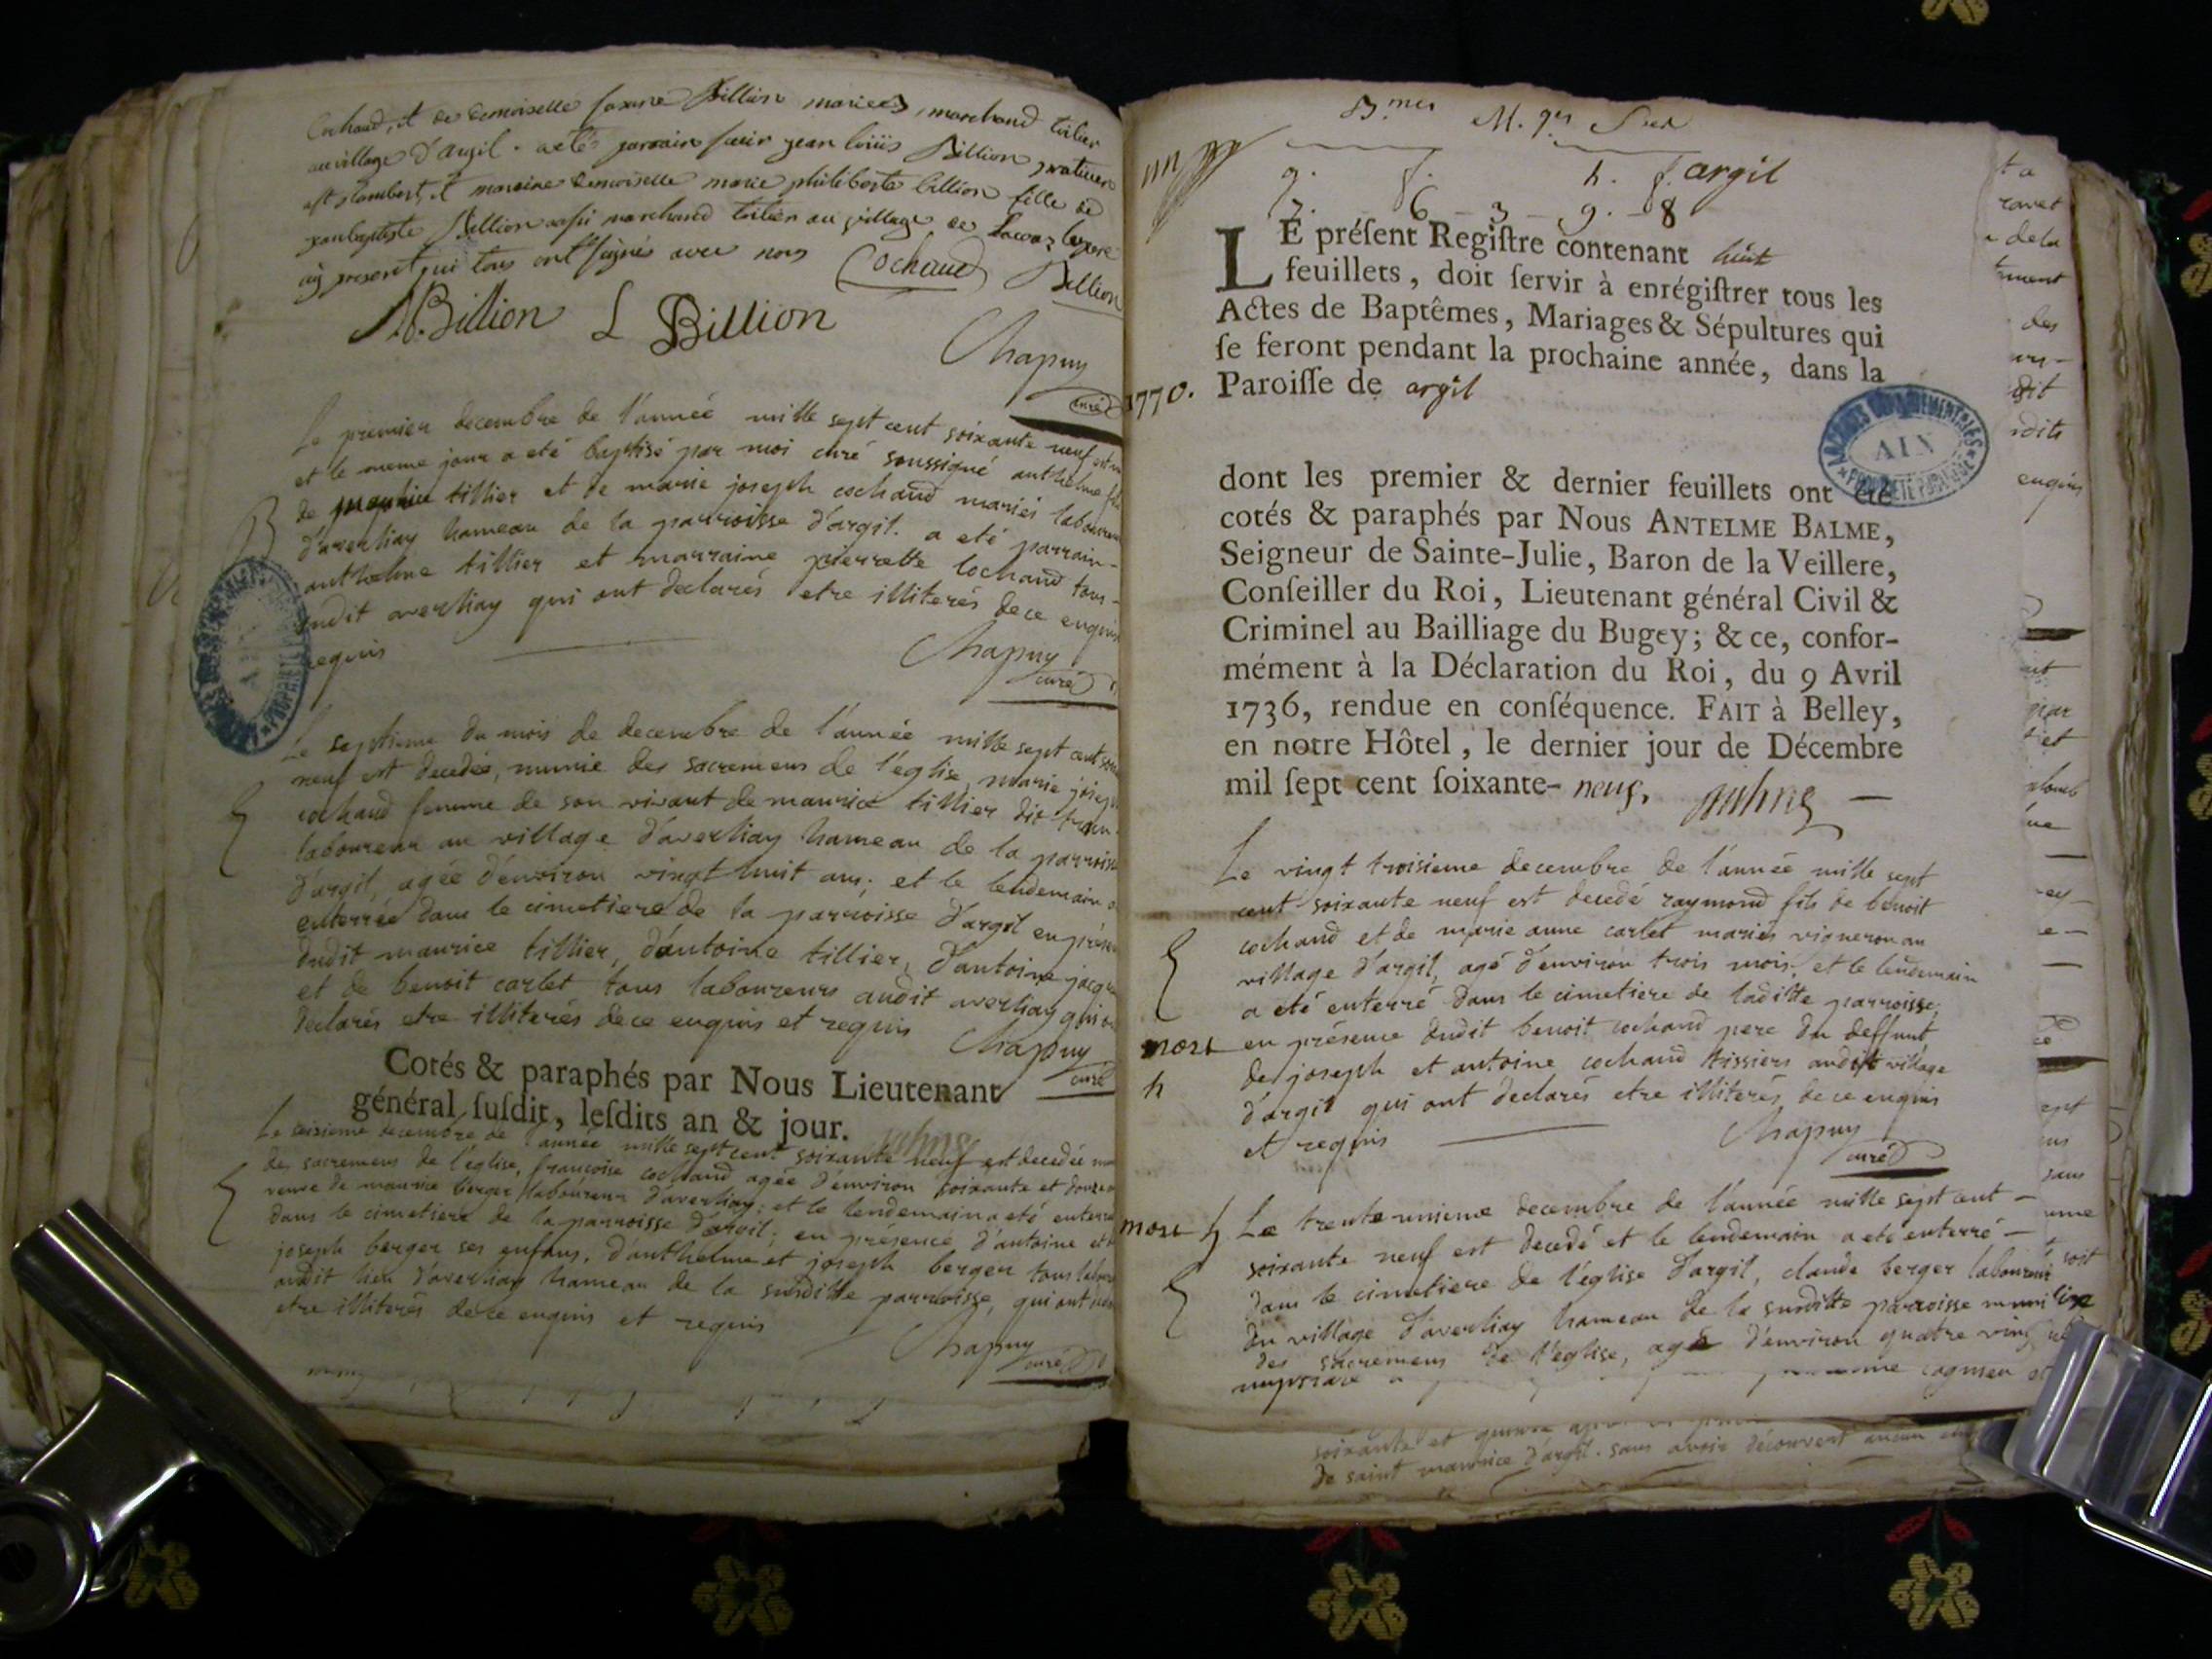 Cochaud, et de demoiselle Billion mariés, marchand toilier
au village d'argil. a eté parrain sieur jean loüis Billion praticien
et marraine demoiselle marie philiberte billion fille de
jean baptiste Billion aussi marchand toilier au village de
ici present qui tous ont signés avec nous Cochaud Billion
M. Billion L Billion
Chapuy
curé
Le premier decembre de l'année mille sept cent soixante neuf est né
et le meme jour a eté baptisé par moi curé soussigné anthelme fils
de maurice tillier et de marie joseph cochaud mariés laboureur
B
d'averliay hameau de la parroisse d'argil. a eté parrain-
anthelme tillier et marraine pierrette cochaud tous-
dudit averliay qui ont declarés etre illiterés de ce enquis
requis
Chapuy
curé
Le septieme du mois de decembre de l'année mille sept cent
neuf est decedée, munie des sacremens de l'eglise, marie joseph
cochaud femme de son vivant de maurice tillier dit
laboureur au village d'averliay hameau de la parroisse
d'argil, agée d'environ vingt huit ans; et le lendemain a
enterrée dans le cimetiere de la parroisse d'argil en présence
dudit maurice tillier, d'antoine tillier, d'antoine
et de benoit carlet tous laboureurs audit averliay qui ont
declarés etre illiterés de ce enquis et requis Chapuy
curé
Cotés & paraphés par Nous Lieutenant
général susdit, lesdits an & jour.
Le seisieme decembre de l'année mille sept cent soixante neuf est decedée
des sacremens de l'eglise, françoise cochaud agée d'environ soixante et douze
veuve de maurice berger laboureur d'averliay; et le lendemain a eté enterrée
dans le cimetiere de la parroisse d'argil; en présence d'antoine et
joseph berger ses enfans, d'anthelme et joseph berger tous
audit lieu d'averliay hameau de la susditte parroisse, qui ont
etre illiterés de ce enquis et requis
Chapuy
curé
B.mes M.ges Sres
g. f. h. f. argil
7. 6 3 9. 8
LE présent Registre contenant huit
feuillets, doit servir à enrégistrer tous les
Actes de Baptêmes, Mariages & Sépultures qui
se feront pendant la prochaine année, dans la
1770. Paroisse de argil
ARCHIVES DÉPARTEMENTALES
AIN
PROPRIÉTÉ PUBLIQUE
dont les premier & dernier feuillets ont été
cotés & paraphés par Nous ANTELME BALME,
Seigneur de Sainte-Julie, Baron de la Veillere,
Conseiller du Roi, Lieutenant général Civil &
Criminel au Bailliage du Bugey; & ce, confor-
mément à la Déclaration du Roi, du 9 Avril
1736, rendue en conséquence. FAIT à Belley,
en notre Hôtel, le dernier jour de Décembre
mil sept cent soixante- neuf.
Le vingt troisieme decembre de l'année mille sept
cent soixante neuf est decedé raymond fils de benoit
cochaud et de marie anne carlet mariés vigneron au
village d'argil, agé d'environ trois mois, et le lendemain
a eté enterré dans le cimetiere de laditte parroisse;
mort en présence dudit benoit cochaud pere du deffunt
h de joseph et antoine cochaud tissiers audit village
d'argil qui ont declarés etre illiterés de ce enquis
et requis
Chapuy
curé
mort h Le trente unieme decembre de l'année mille sept cent-
soixante neuf est decedé et le lendemain a eté enterré-
dans le cimetiere de l'eglise d'argil, claude berger laboureur
du village d'averliay hameau de la susditte parroisse muni
des sacremens de l'eglise, agé d'environ quatre vingt
soixante et quinze
de saint maurice d'argil. sans avoir découvert aucun